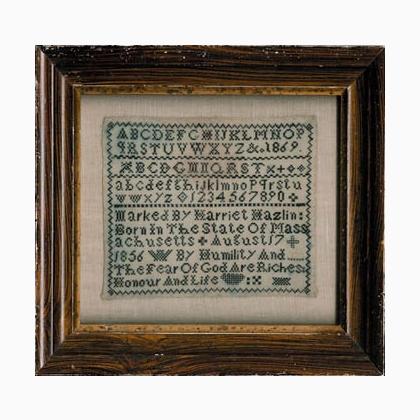 ABCDEFGHIJKLMNOP
QRSTUVWXYZ&.1869.
ABCDGMIORSTX
abcdefghijklmnopqrstu
vwxyz 01234567890
Marked By Harriet Hazlin:
Born In The State Of Mass
achusetts August 17
1856 By Humility And......
The Fear Of God Are Riches.
Honour And Life